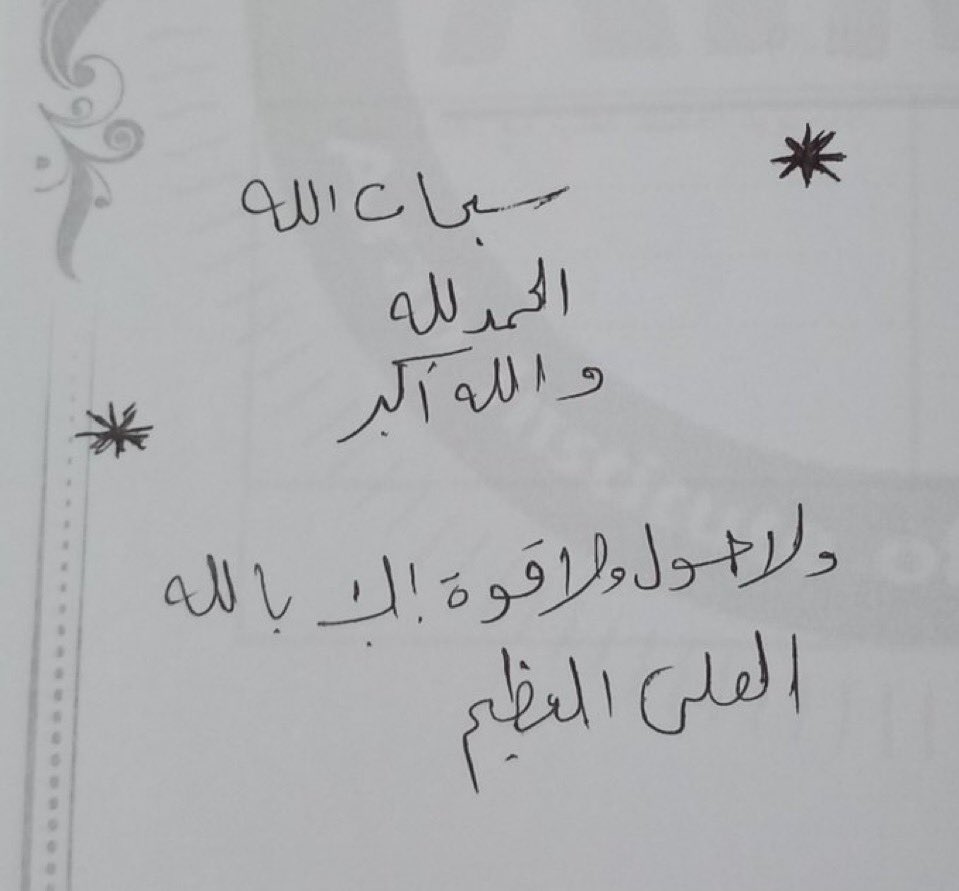 سبحان الله
الحمد لله
والله أكبر
ولا حول ولا قوة إلا بالله
العلى العظيم